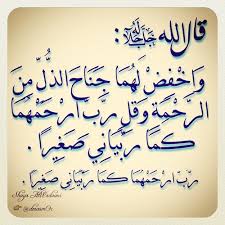 قال الله جل جلاله :
وَاخْفِضْ لَهُمَا جَنَاحَ الذُّلِّ مِنَ
الرَّحْمَةِ وَقُلْ رَبِّ ارْحَمْهُمَا
كَمَا رَبَّيَانِي صَغِيرًا .
رَبِّ ارْحَمْهُمَا كَمَا رَبَّيَانِي صَغِيرًا .